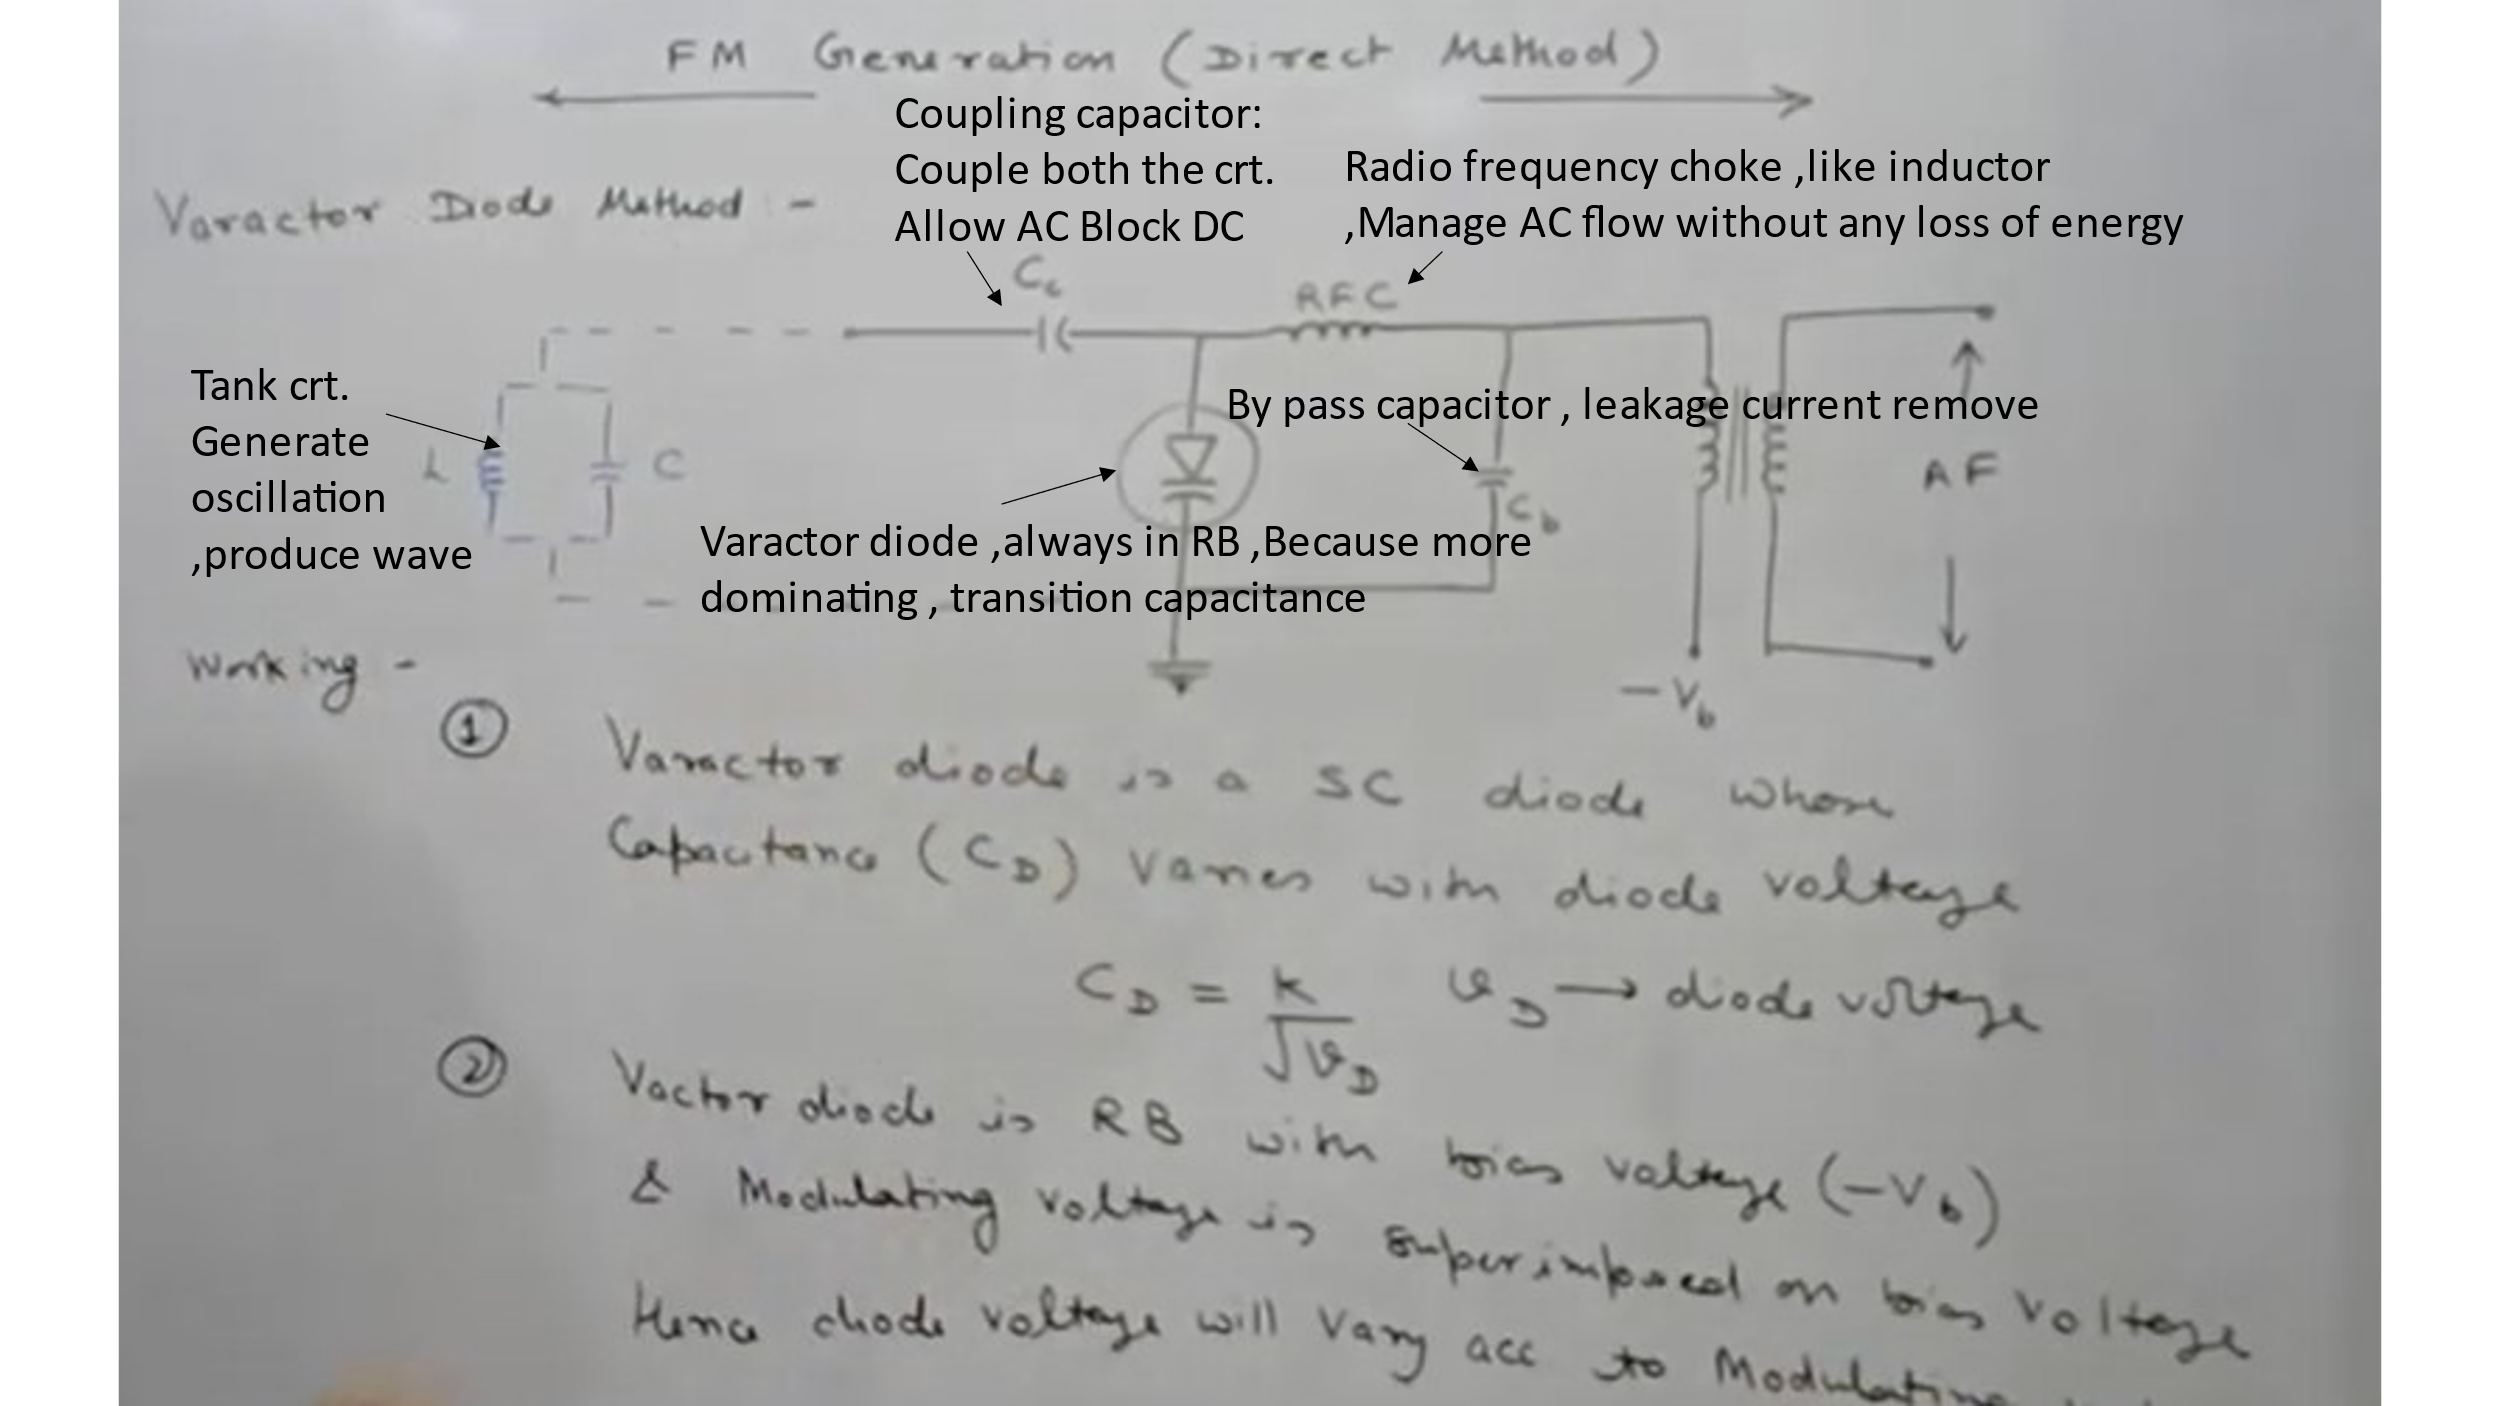 FM Generation (Direct Method)
Coupling capacitor:
Couple both the crt.
Allow AC Block DC
Radio frequency choke ,like inductor
,Manage AC flow without any loss of energy
Varactor Diode Method -
Cc
RFC
Tank crt.
Generate
oscillation
,produce wave
L
C
By pass capacitor , leakage current remove
AF
Cb
Varactor diode ,always in RB ,Because more
dominating , transition capacitance
-Vb
Working -
① Varactor diode is a SC diode whose
Capacitance (CD) varies with diode voltage
CD = K/√vD vD → diode voltage
② Vactor diode is RB with bias voltage (-Vb)
& Modulating voltage is superimposed on bias voltage
Hence diode voltage will vary acc to Modulating